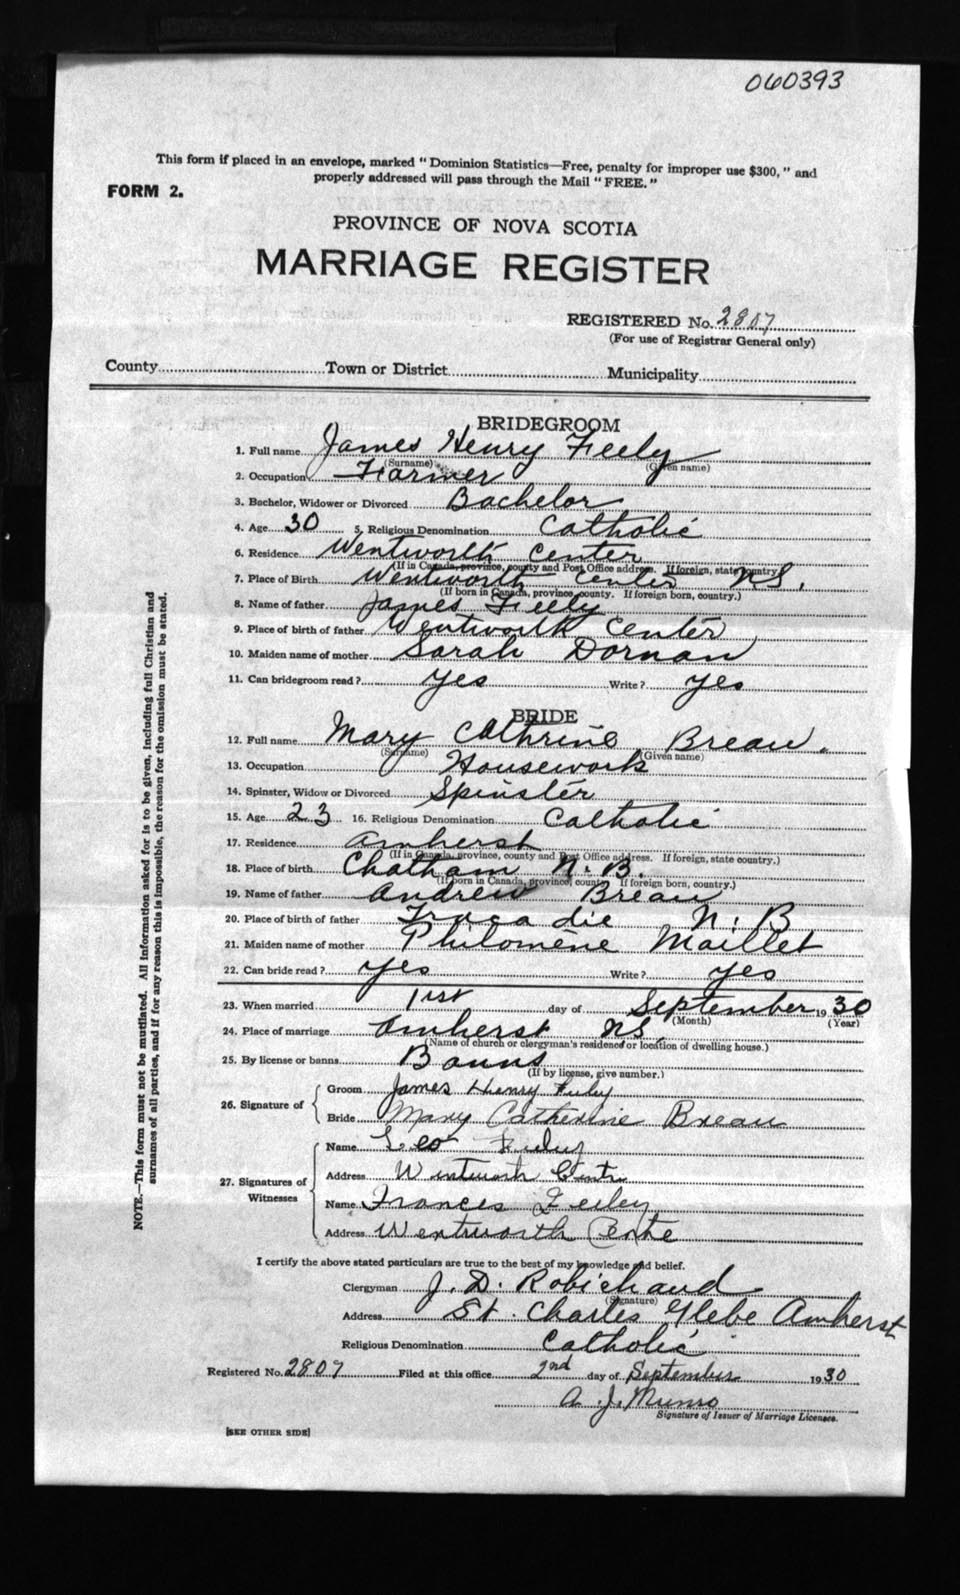 060393
This form if placed in an envelope, marked "Dominion Statistics—Free, penalty for improper use $300," and
properly addressed will pass through the Mail "FREE."
FORM 2.
PROVINCE OF NOVA SCOTIA
MARRIAGE REGISTER
REGISTERED No. 2807
(For use of Registrar General only)
County Town or District Municipality
BRIDEGROOM
1. Full name James Henry Feely
(Surname) (Given name)
2. Occupation Farmer
3. Bachelor, Widower or Divorced Bachelor
4. Age 30 5. Religious Denomination Catholic
6. Residence Wentworth Center
(If in Canada, province, county and Post Office address. If foreign, state country.)
7. Place of Birth Wentworth Center N.S.
(If born in Canada, province, county. If foreign born, country.)
8. Name of father James Feely
9. Place of birth of father Wentworth Center
10. Maiden name of mother Sarah Dornan
11. Can bridegroom read? yes Write? yes
BRIDE
12. Full name Mary Cathrine Breau.
(Surname) (Given name)
13. Occupation Housework
14. Spinster, Widow or Divorced Spinster
15. Age 23 16. Religious Denomination Catholic
17. Residence Amherst
(If in Canada, province, county and Post Office address. If foreign, state country.)
18. Place of birth Chatham N.B.
(If born in Canada, province, county. If foreign born, country.)
19. Name of father Andrew Breau
20. Place of birth of father Tracadie N.B
21. Maiden name of mother Philomène Maillet
22. Can bride read? yes Write? yes
23. When married 1rst day of September 1930
(Month) (Year)
24. Place of marriage Amherst NS.
(Name of church or clergyman's residence or location of dwelling house.)
25. By license or banns Banns
(If by license, give number.)
26. Signature of Groom James Henry Feely
Bride Mary Catherine Breau
27. Signatures of Witnesses
Name Leo Feeley
Address Wentworth Centre
Name Frances Feeley
Address Wentworth Centre
I certify the above stated particulars are true to the best of my knowledge and belief.
Clergyman J. D. Robichaud
(Signature)
Address St. Charles Glebe Amherst
Religious Denomination Catholic
Registered No. 2807 Filed at this office 2nd day of September 1930
A. J. Munro
Signature of Issuer of Marriage Licenses.
[SEE OTHER SIDE]
NOTE.—This form must not be mutilated. All information asked for is to be given, including full Christian and
surnames of all parties, and if for any reason this is impossible, the reason for the omission must be stated.